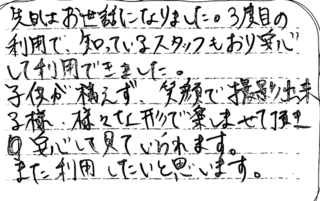 先日はお世話になりました。3度目の
利用で、知っているスタッフもおり安心
して利用できました。
子供が構えず、笑顔で撮影出来
る様、様々な形で楽しませて頂き
安心して見ていられます。
また利用したいと思います。